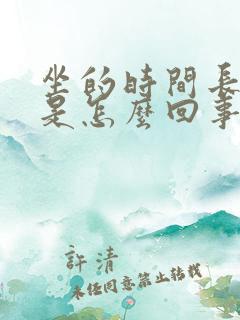 坐的時間長
是怎麼回事
許清
未经同意禁止转载